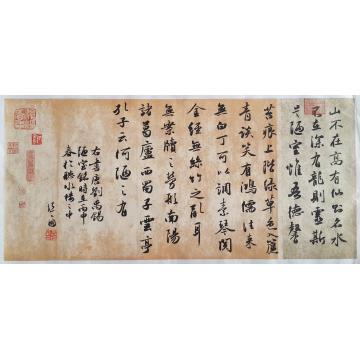 山不在高有仙則名水
不在深有龍則靈斯
是陋室惟吾德馨
苔痕上階綠草色入簾
青談笑有鴻儒往來
無白丁可以調素琴閱
金經無絲竹之亂耳
無案牘之勞形南陽
諸葛廬西蜀子雲亭
孔子云何陋之有
右書唐劉禹錫
陋室銘時在丙申
春於聽水